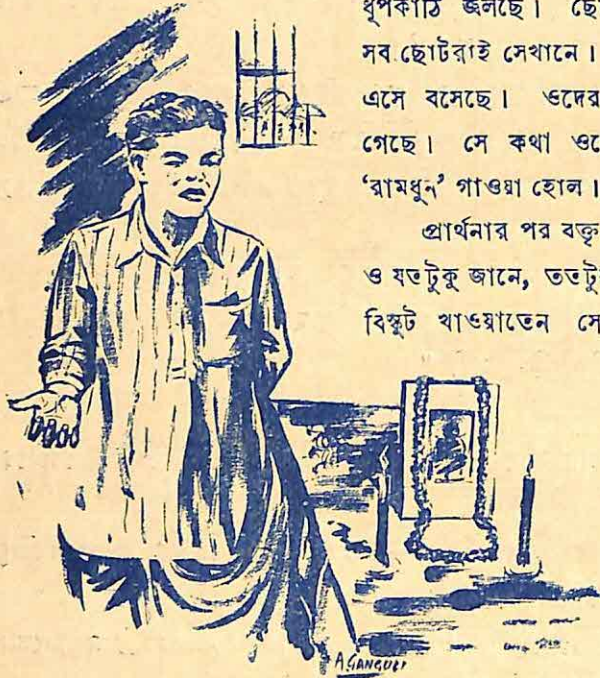 ধূপকাঠি জলছে। ছো
সব ছোটরাই সেখানে।
এসে বসেছে। ওদের
গেছে। সে কথা ওে
‘রামধুন’ গাওয়া হোল।
প্রার্থনার পর বক্তৃ
ও যতটুকু জানে, ততটু
বিস্কুট খাওয়াতেন সে
A.GANGULI